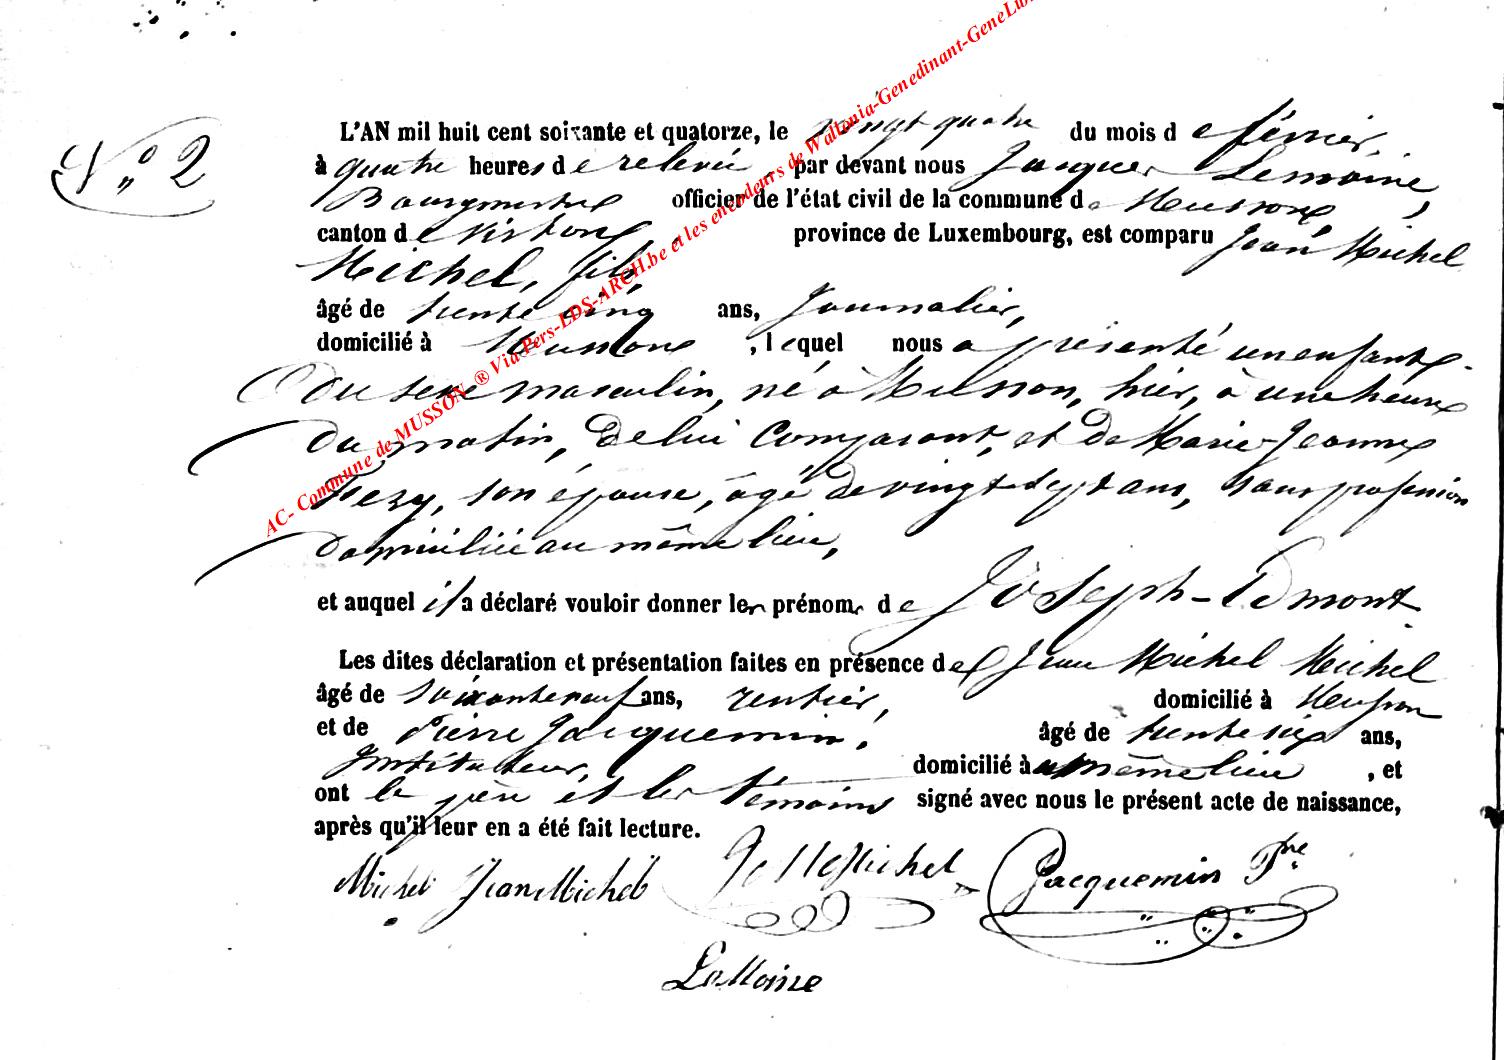 AC- Commune de MUSSON ® Via Pers-LDS-ARCH.be et les encodeurs de Waltonia-Genedinant-GeneLib
N° 2
L'AN mil huit cent soixante et quatorze, le vingt quatre du mois de février,
à quatre heures de relevée, par devant nous Jacques Lemoine,
Bourgmestre officier de l'état civil de la commune de Musson,
canton de Virton, province de Luxembourg, est comparu Jean Michel
Michel, fils,
âgé de trente cinq ans, Journalier,
domicilié à Musson, lequel nous a présenté un enfant
du sexe masculin, né à Musson, hier, à une heure
du matin, de lui comparant, et de Marie-Jeanne
son épouse, âgé de vingt sept ans, sans profession
domiciliée au même lieu,
et auquel il a déclaré vouloir donner les prénoms de Joseph-Edmont.
Les dites déclaration et présentation faites en présence de Jean Michel Michel
âgé de soixante neuf ans, rentier, domicilié à Musson
et de Pierre Jacquemin, âgé de trente six ans,
Instituteur, domicilié au même lieu, et
ont le père et les témoins signé avec nous le présent acte de naissance,
après qu'il leur en a été fait lecture.
Michel Jean Michel Michel Jacquemin Pre
LeMoine